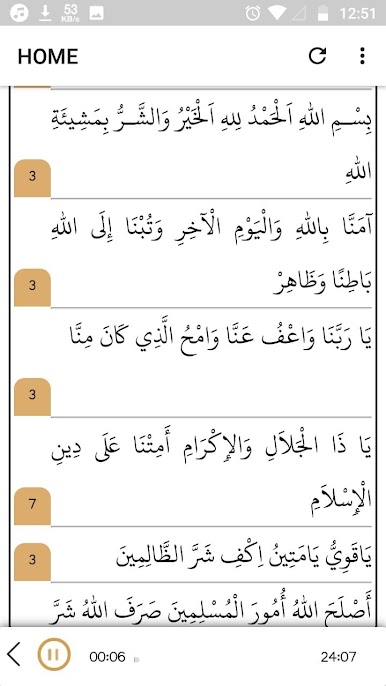 53
KB/s
12:51
HOME
بِسْــمِ اللهِ اَلْحَمْدُ لِلهِ اَلْخَيْرُ وَالشَّــرُّ بِمَشِيئَةِ
اللهِ
3
آمَنَّا بِاللهِ وَالْيَوْمِ الْآخِرِ وَتُبْنَا إِلَى اللهِ
بَاطِنًا وَظَاهِرْ
3
يَا رَبَّنَا وَاعْفُ عَنَّا وَامْحُ الَّذِي كَانَ مِنَّا
3
يَا ذَا الْجَلاَلِ وَالإِكْرَامِ أَمِتْنَا عَلَى دِينِ
الْإِسْلاَمِ
7
يَاقَوِيُّ يَامَتِينُ اِكْفِ شَرَّ الظَّالِمِينَ
3
أَصْلَحَ اللهُ أُمُورَ الْمُسْلِمِينَ صَرَفَ اللهُ شَرَّ
00:06
24:07